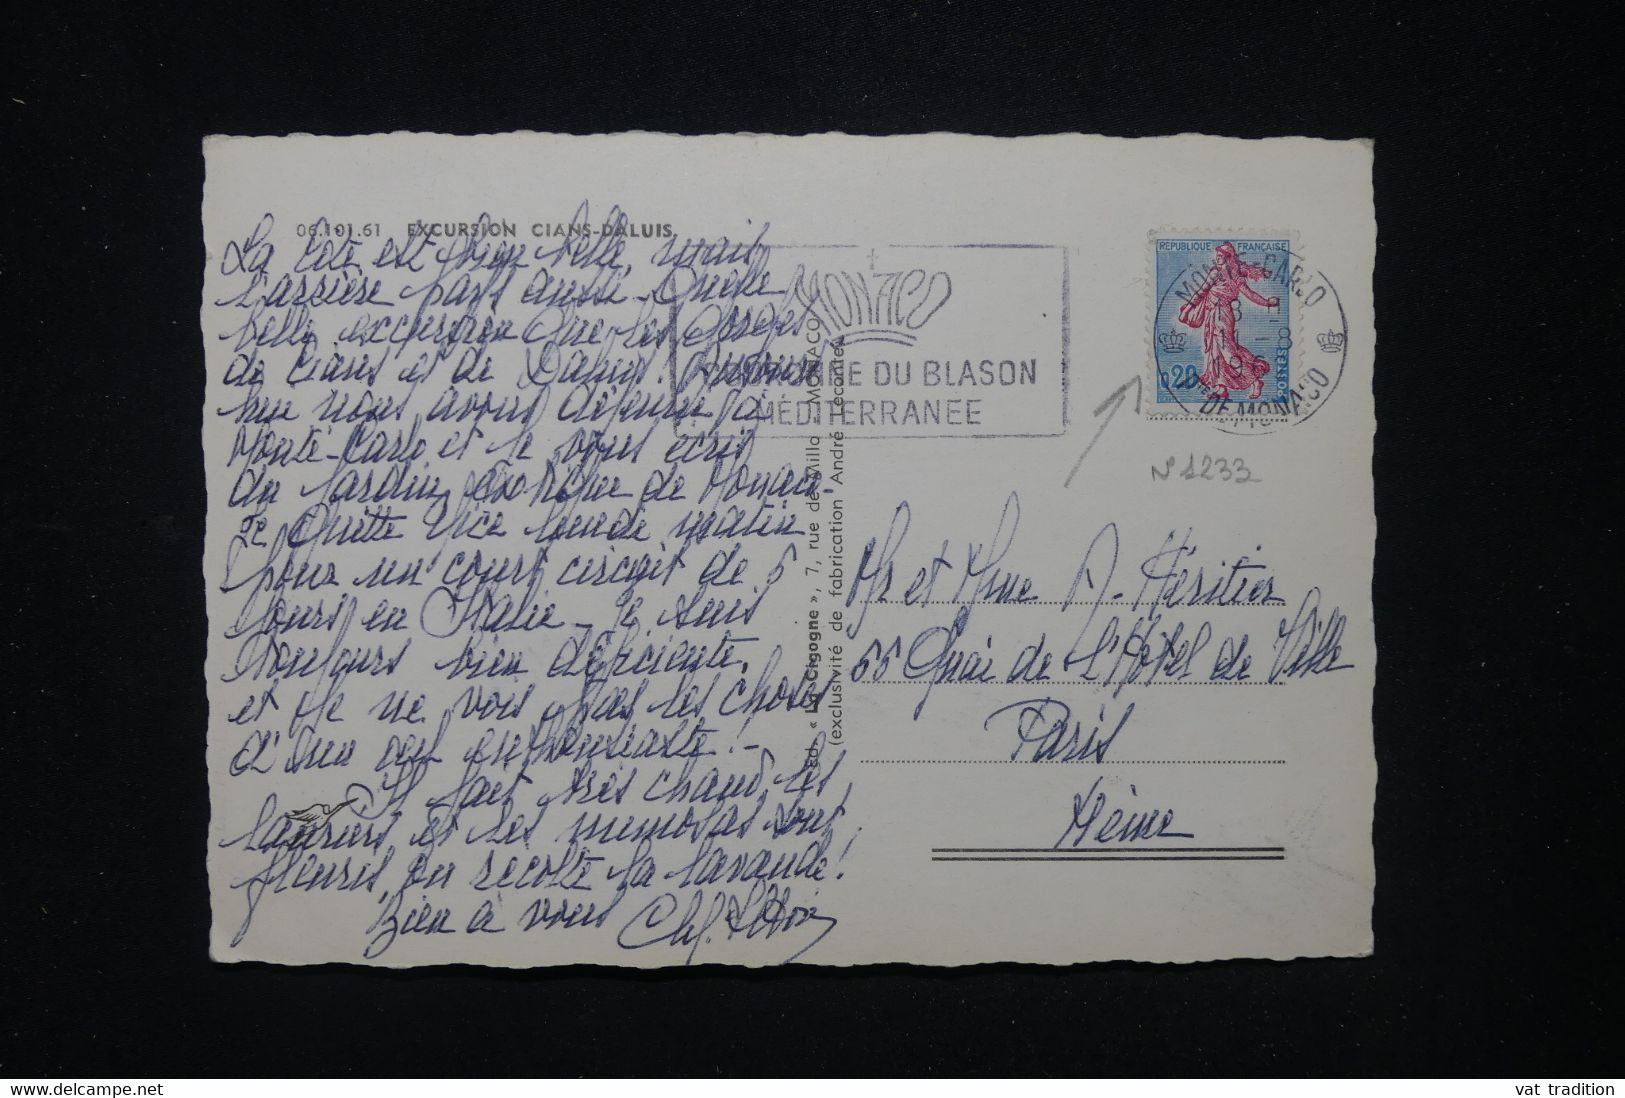 06.101.61 EXCURSION CIANS-DALUIS
La Côte est bien belle, mais
l'arrière pays aussi. Quelle
belle excursion que les Gorges
de Cians et de Daluis.
nous avons déjeuné à
Monte-Carlo et je vous écris
du Jardin Exotique de Monaco.
Je quitte Nice lundi matin
pour un court circuit de 5
jours en Italie. Je suis
toujours bien déficiente,
et je ne vois pas les choses
d'un œil enthousiaste! -
Il fait très chaud, les
lauriers et les mimosas sont
fleuris, on récolte la lavande!
Bien à vous
Ed. « La Cigogne », 7, rue de Millo - MONACO
(exclusivité de fabrication André Leconte)
MONACO
DU BLASON
MÉDITERRANÉE
RÉPUBLIQUE FRANÇAISE
0,20
POSTES
MONTE-CARLO
DE MONACO
N°1233
Mr et Mme A. Héritier
55 Quai de l'Hôtel de Ville
Paris
Seine
www.delcampe.net
vat tradition